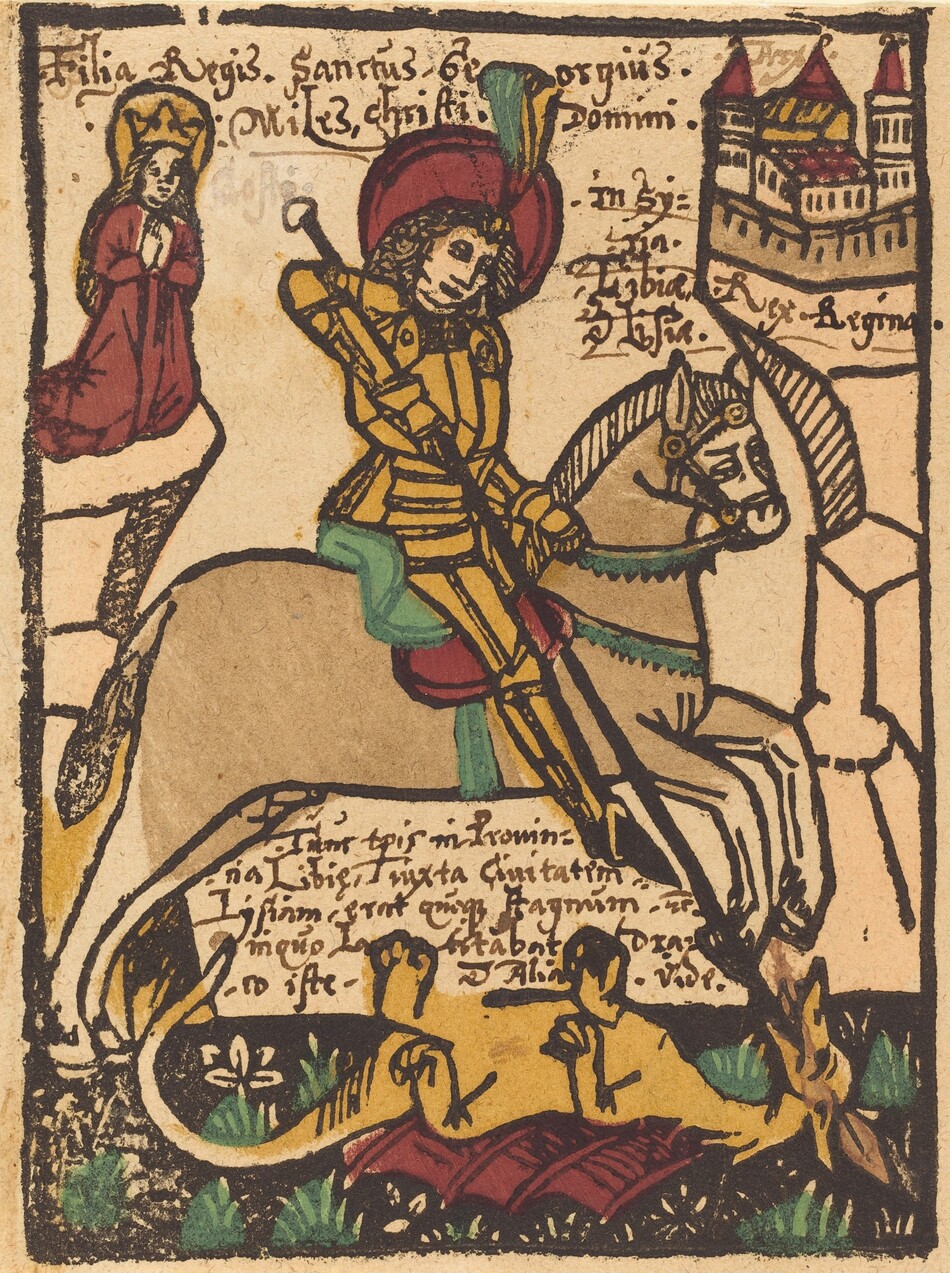 Filia Regis. Sanctus Georgius.
Miles, christi. Domini.
in Sy=
ria.
Libiæ,
Rex. Regina
& Lysiæ.
Tunc tp̄is in Provin=
cia Libię, Juxta Civitatem
Lysiam, erat quoque Stagnum,
inquo Latitabat dra=
co iste. & Alia. Vide.